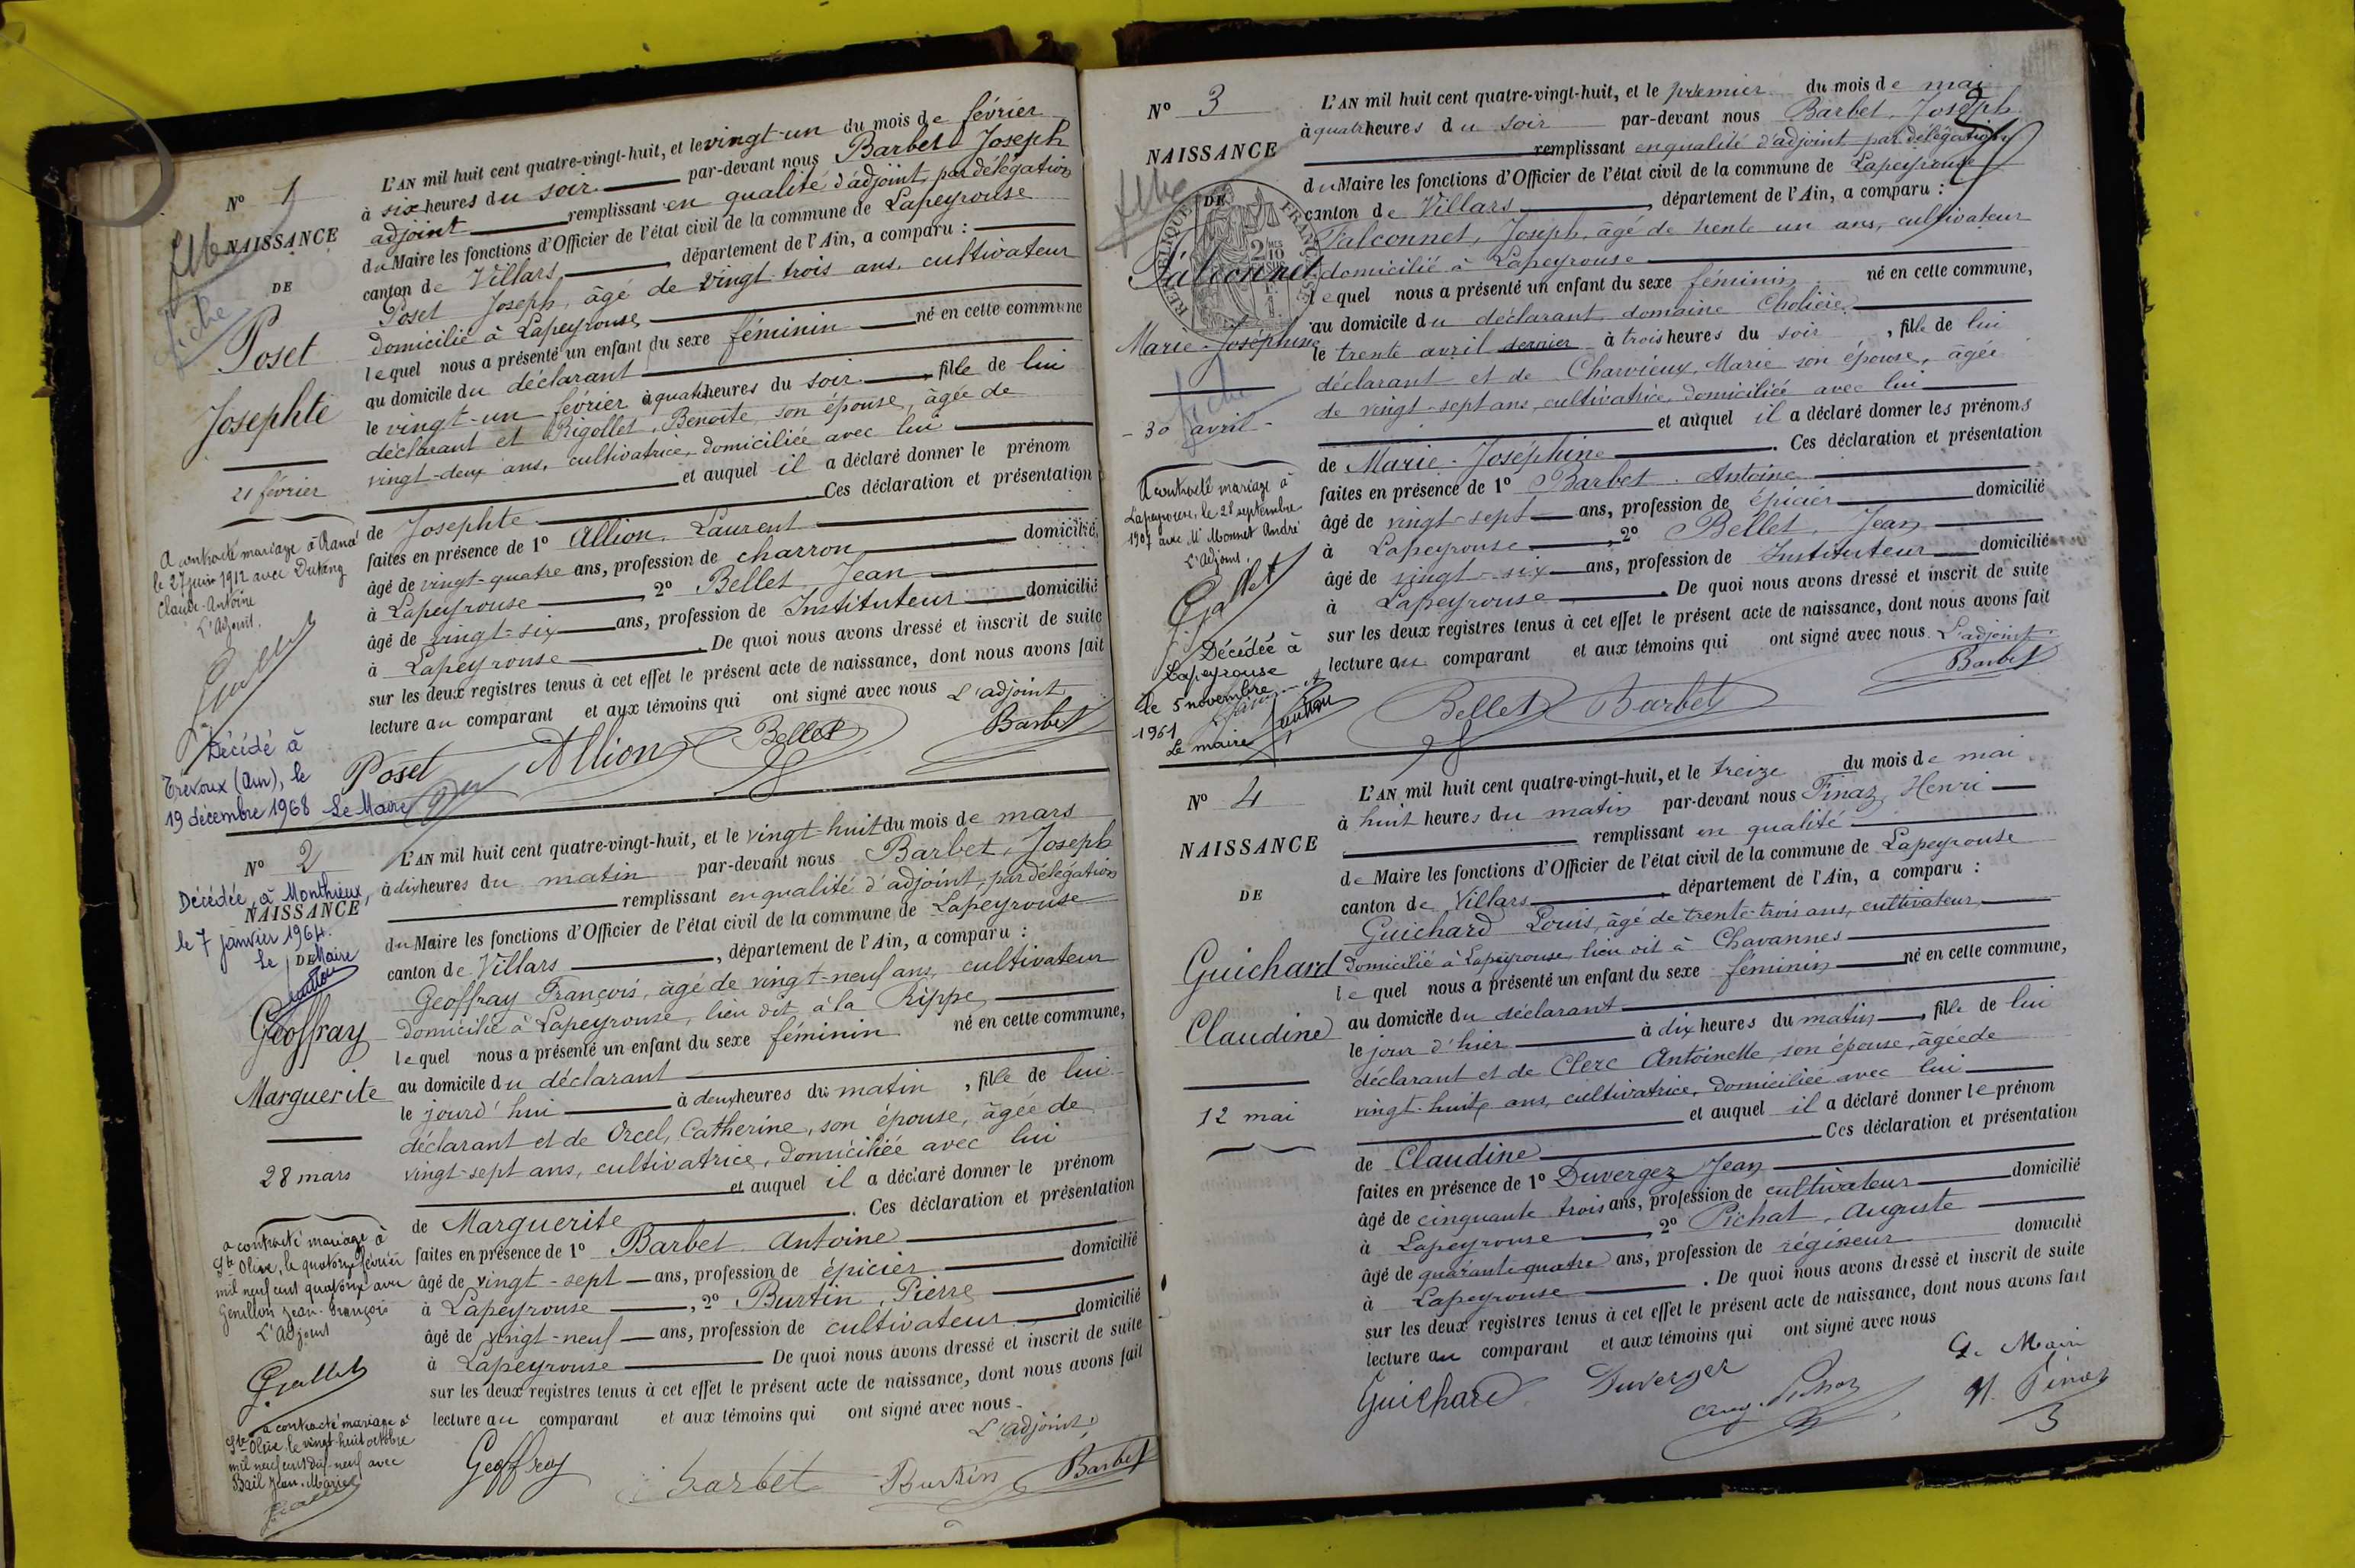 N° 1
fille
NAISSANCE
DE
fiche
Poset
Josephte
21 février
A contracté mariage à Rancé
le 27 juin 1912 avec Dutang
Claude-Antoine
L'Adjoint.
Décédé à
Trévoux (Ain), le
19 décembre 1968 Le Maire
L'AN mil huit cent quatre-vingt-huit, et le vingt-un du mois de février
à six heures du soir par-devant nous Barbet Joseph
adjoint remplissant en qualité d'adjoint, par délégation
du Maire les fonctions d'Officier de l'état civil de la commune de Lapeyrouse
canton de Villars, département de l'Ain, a comparu :
Poset Joseph, âgé de vingt trois ans, cultivateur
domicilié à Lapeyrouse
lequel nous a présenté un enfant du sexe féminin né en cette commune
au domicile du déclarant
le vingt-un février à quatre heures du soir, fille de lui
déclarant et Rigollet, Benoîte, son épouse, âgée de
vingt-deux ans, cultivatrice, domiciliée avec lui
et auquel il a déclaré donner le prénom
de Josephte. Ces déclaration et présentation
faites en présence de 1° Allion, Laurent
âgé de vingt-quatre ans, profession de charron domicilié
à Lapeyrouse, 2° Bellet, Jean
âgé de vingt-six ans, profession de Instituteur domicilié
à Lapeyrouse. De quoi nous avons dressé et inscrit de suite
sur les deux registres tenus à cet effet le présent acte de naissance, dont nous avons fait
lecture au comparant et aux témoins qui ont signé avec nous L'adjoint
Poset Allion Bellet Barbet
N° 2
Décédée à Monthieux,
NAISSANCE
le 7 janvier 1964.
Le Maire
DE
Geoffray
Marguerite
28 mars
a contracté mariage à
Ste Olive, le quatorze février
mil neuf cent quatorze avec
Genillon Jean-François
L'Adjoint
Gallet
a contracté mariage à
Ste Olive le vingt huit octobre
mil neuf cent dix-neuf avec
Bail Jean-Marie
L'AN mil huit cent quatre-vingt-huit, et le vingt-huit du mois de mars
à dix heures du matin par-devant nous Barbet, Joseph
remplissant en qualité d'adjoint, par délégation
du Maire les fonctions d'Officier de l'état civil de la commune de Lapeyrouse
canton de Villars, département de l'Ain, a comparu :
Geoffray François, âgé de vingt-neuf ans, cultivateur
domicilié à Lapeyrouse, lieu dit à la Rippe
lequel nous a présenté un enfant du sexe féminin né en cette commune,
au domicile du déclarant
le jourd'hui à deux heures du matin, fille de lui
déclarant et de Orcel, Catherine, son épouse, âgée de
vingt-sept ans, cultivatrice, domiciliée avec lui
et auquel il a déclaré donner le prénom
de Marguerite. Ces déclaration et présentation
faites en présence de 1° Barbet Antoine
âgé de vingt-sept ans, profession de épicier domicilié
à Lapeyrouse, 2° Burtin, Pierre
âgé de vingt-neuf ans, profession de cultivateur domicilié
à Lapeyrouse De quoi nous avons dressé et inscrit de suite
sur les deux registres tenus à cet effet le présent acte de naissance, dont nous avons fait
lecture au comparant et aux témoins qui ont signé avec nous
L'adjoint,
Geoffray barbet Burtin Barbet
N° 3
NAISSANCE
fille
DE
RÉPUBLIQUE FRANÇAISE
Falconnet
Marie-Joséphine
fiche
- 30 avril -
A contracté mariage à
Lapeyrouse, le 28 septembre
1907 avec Mr Monnet André
L'Adjoint,
Gallet
Décédée à
Lapeyrouse
le 5 novembre
1961
Le maire
L'AN mil huit cent quatre-vingt-huit, et le premier du mois de mai
à quatre heures du soir par-devant nous Barbet, Joseph
remplissant en qualité d'adjoint par délégation
du Maire les fonctions d'Officier de l'état civil de la commune de Lapeyrouse
canton de Villars, département de l'Ain, a comparu :
Falconnet, Joseph, âgé de trente un ans, cultivateur
domicilié à Lapeyrouse
lequel nous a présenté un enfant du sexe féminin né en cette commune,
au domicile du déclarant, domaine Cholière
le trente avril dernier à trois heures du soir, fille de lui
déclarant et de Charvieux, Marie son épouse, âgée
de vingt-sept ans, cultivatrice, domiciliée avec lui
et auquel il a déclaré donner les prénoms
de Marie-Joséphine. Ces déclaration et présentation
faites en présence de 1° Barbet Antoine
âgé de vingt-sept ans, profession de épicier domicilié
à Lapeyrouse, 2° Bellet, Jean
âgé de vingt-six ans, profession de Instituteur domicilié
à Lapeyrouse. De quoi nous avons dressé et inscrit de suite
sur les deux registres tenus à cet effet le présent acte de naissance, dont nous avons fait
lecture au comparant et aux témoins qui ont signé avec nous L'adjoint
Bellet Barbet Barbet
N° 4
NAISSANCE
DE
Guichard
Claudine
12 mai
L'AN mil huit cent quatre-vingt-huit, et le treize du mois de mai
à huit heures du matin par-devant nous Finaz, Henri
remplissant en qualité
de Maire les fonctions d'Officier de l'état civil de la commune de Lapeyrouse
canton de Villars, département de l'Ain, a comparu :
Guichard Louis, âgé de trente-trois ans, cultivateur,
domicilié à Lapeyrouse, lieu dit à Chavannes
lequel nous a présenté un enfant du sexe féminin né en cette commune,
au domicile du déclarant
le jour d'hier à dix heures du matin, fille de lui
déclarant et de Clerc Antoinette, son épouse, âgée de
vingt-huit ans, cultivatrice, domiciliée avec lui
et auquel il a déclaré donner le prénom
de Claudine Ces déclaration et présentation
faites en présence de 1° Duverger Jean
âgé de cinquante trois ans, profession de cultivateur domicilié
à Lapeyrouse, 2° Pichat, Auguste
âgé de quarante quatre ans, profession de régisseur domicilié
à Lapeyrouse. De quoi nous avons dressé et inscrit de suite
sur les deux registres tenus à cet effet le présent acte de naissance, dont nous avons fait
lecture au comparant et aux témoins qui ont signé avec nous
Le Maire
Guichard Duverger H. Finaz
3